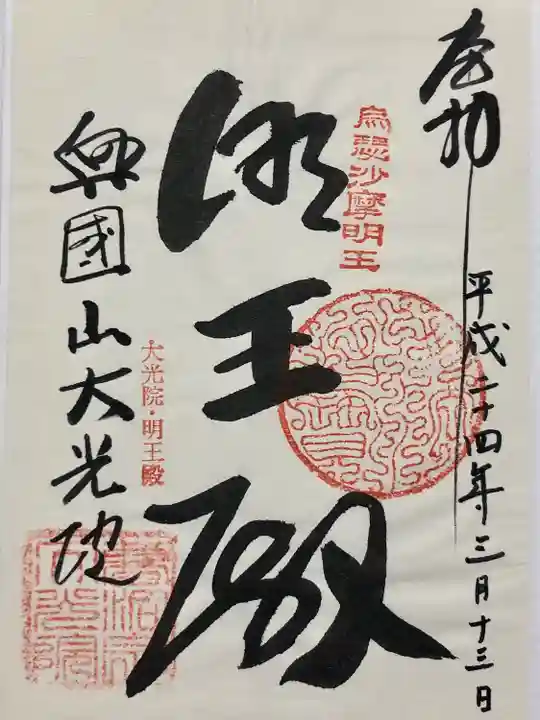 奉拝
平成二十四年三月十三日
烏瑟沙摩明王
明王殿
大光院・明王殿
興國山大光院